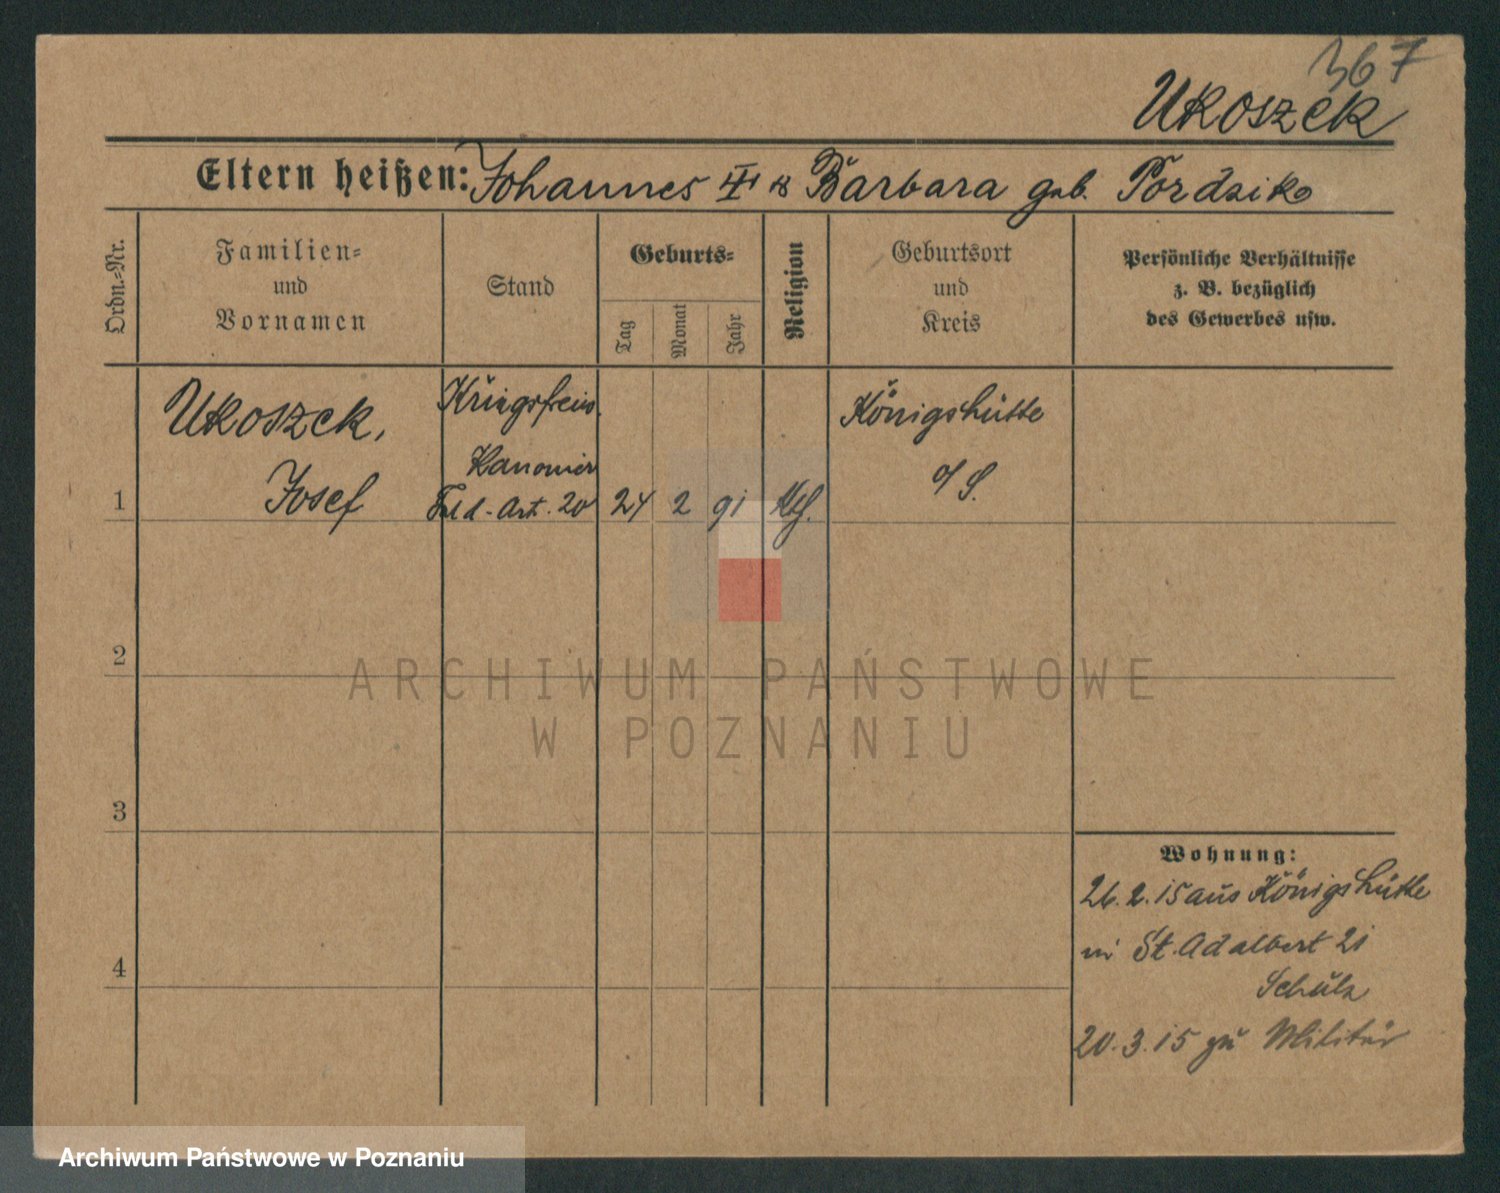 367
Ukoszek
Eltern heißen: Johannes III & Barbara geb. Pordzik
Ordn.-Nr.
Familien- und Vornamen
Stand
Geburts-
Tag
Monat
Jahr
Religion
Geburtsort und Kreis
Persönliche Verhältnisse z. B. bezüglich des Gewerbes usw.
1
Ukoszek,
Josef
Kriegsfreiw.
Kanonier
Feld-Art. 20
24
2
91
Kth.
Königshütte
o/S.
2
3
4
Wohnung:
26.2.15 aus Königshütte
in St. Adalbert 21
Schulz
20.3.15 zu Militär
ARCHIWUM PAŃSTWOWE
W POZNANIU
Archiwum Państwowe w Poznaniu